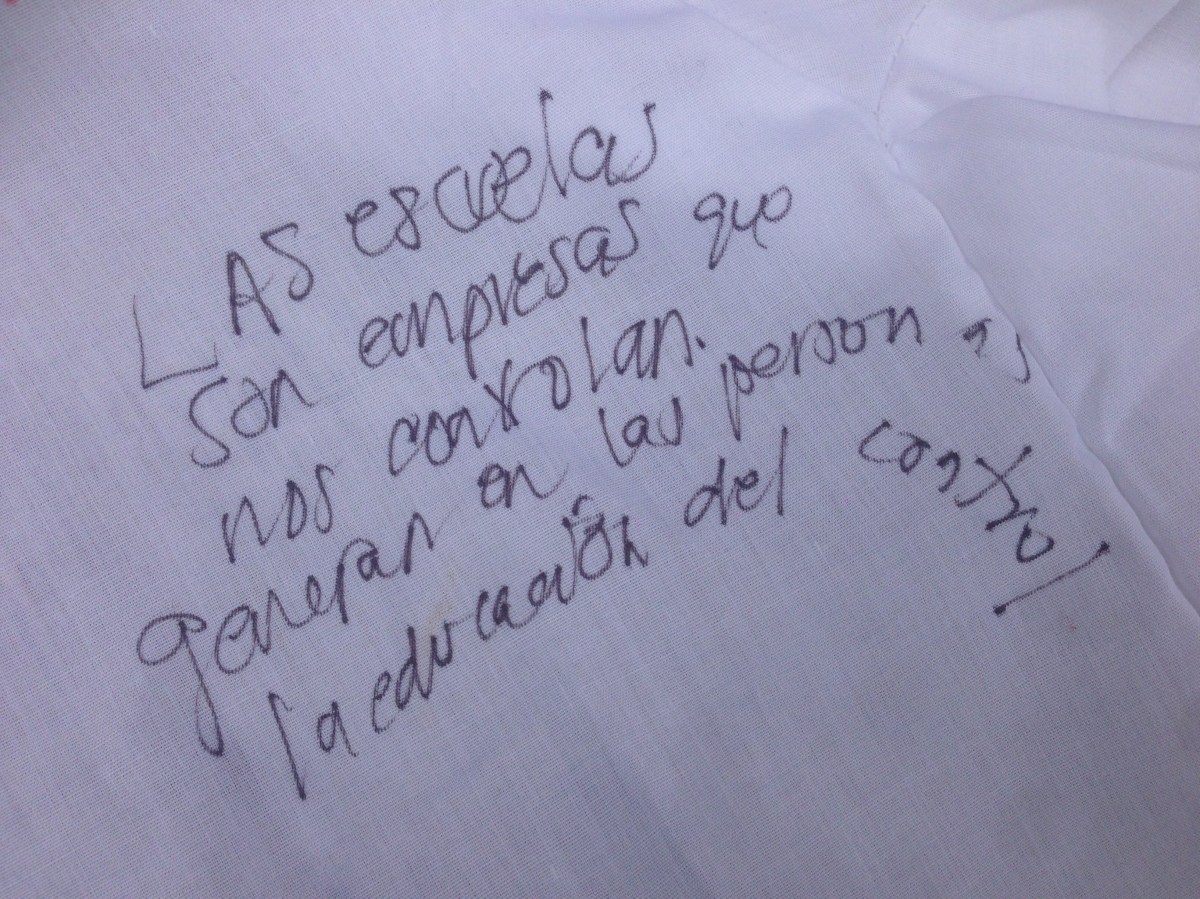 LAS escuelas
son empresas que
nos controlan.
generan en las personas
la educación del control